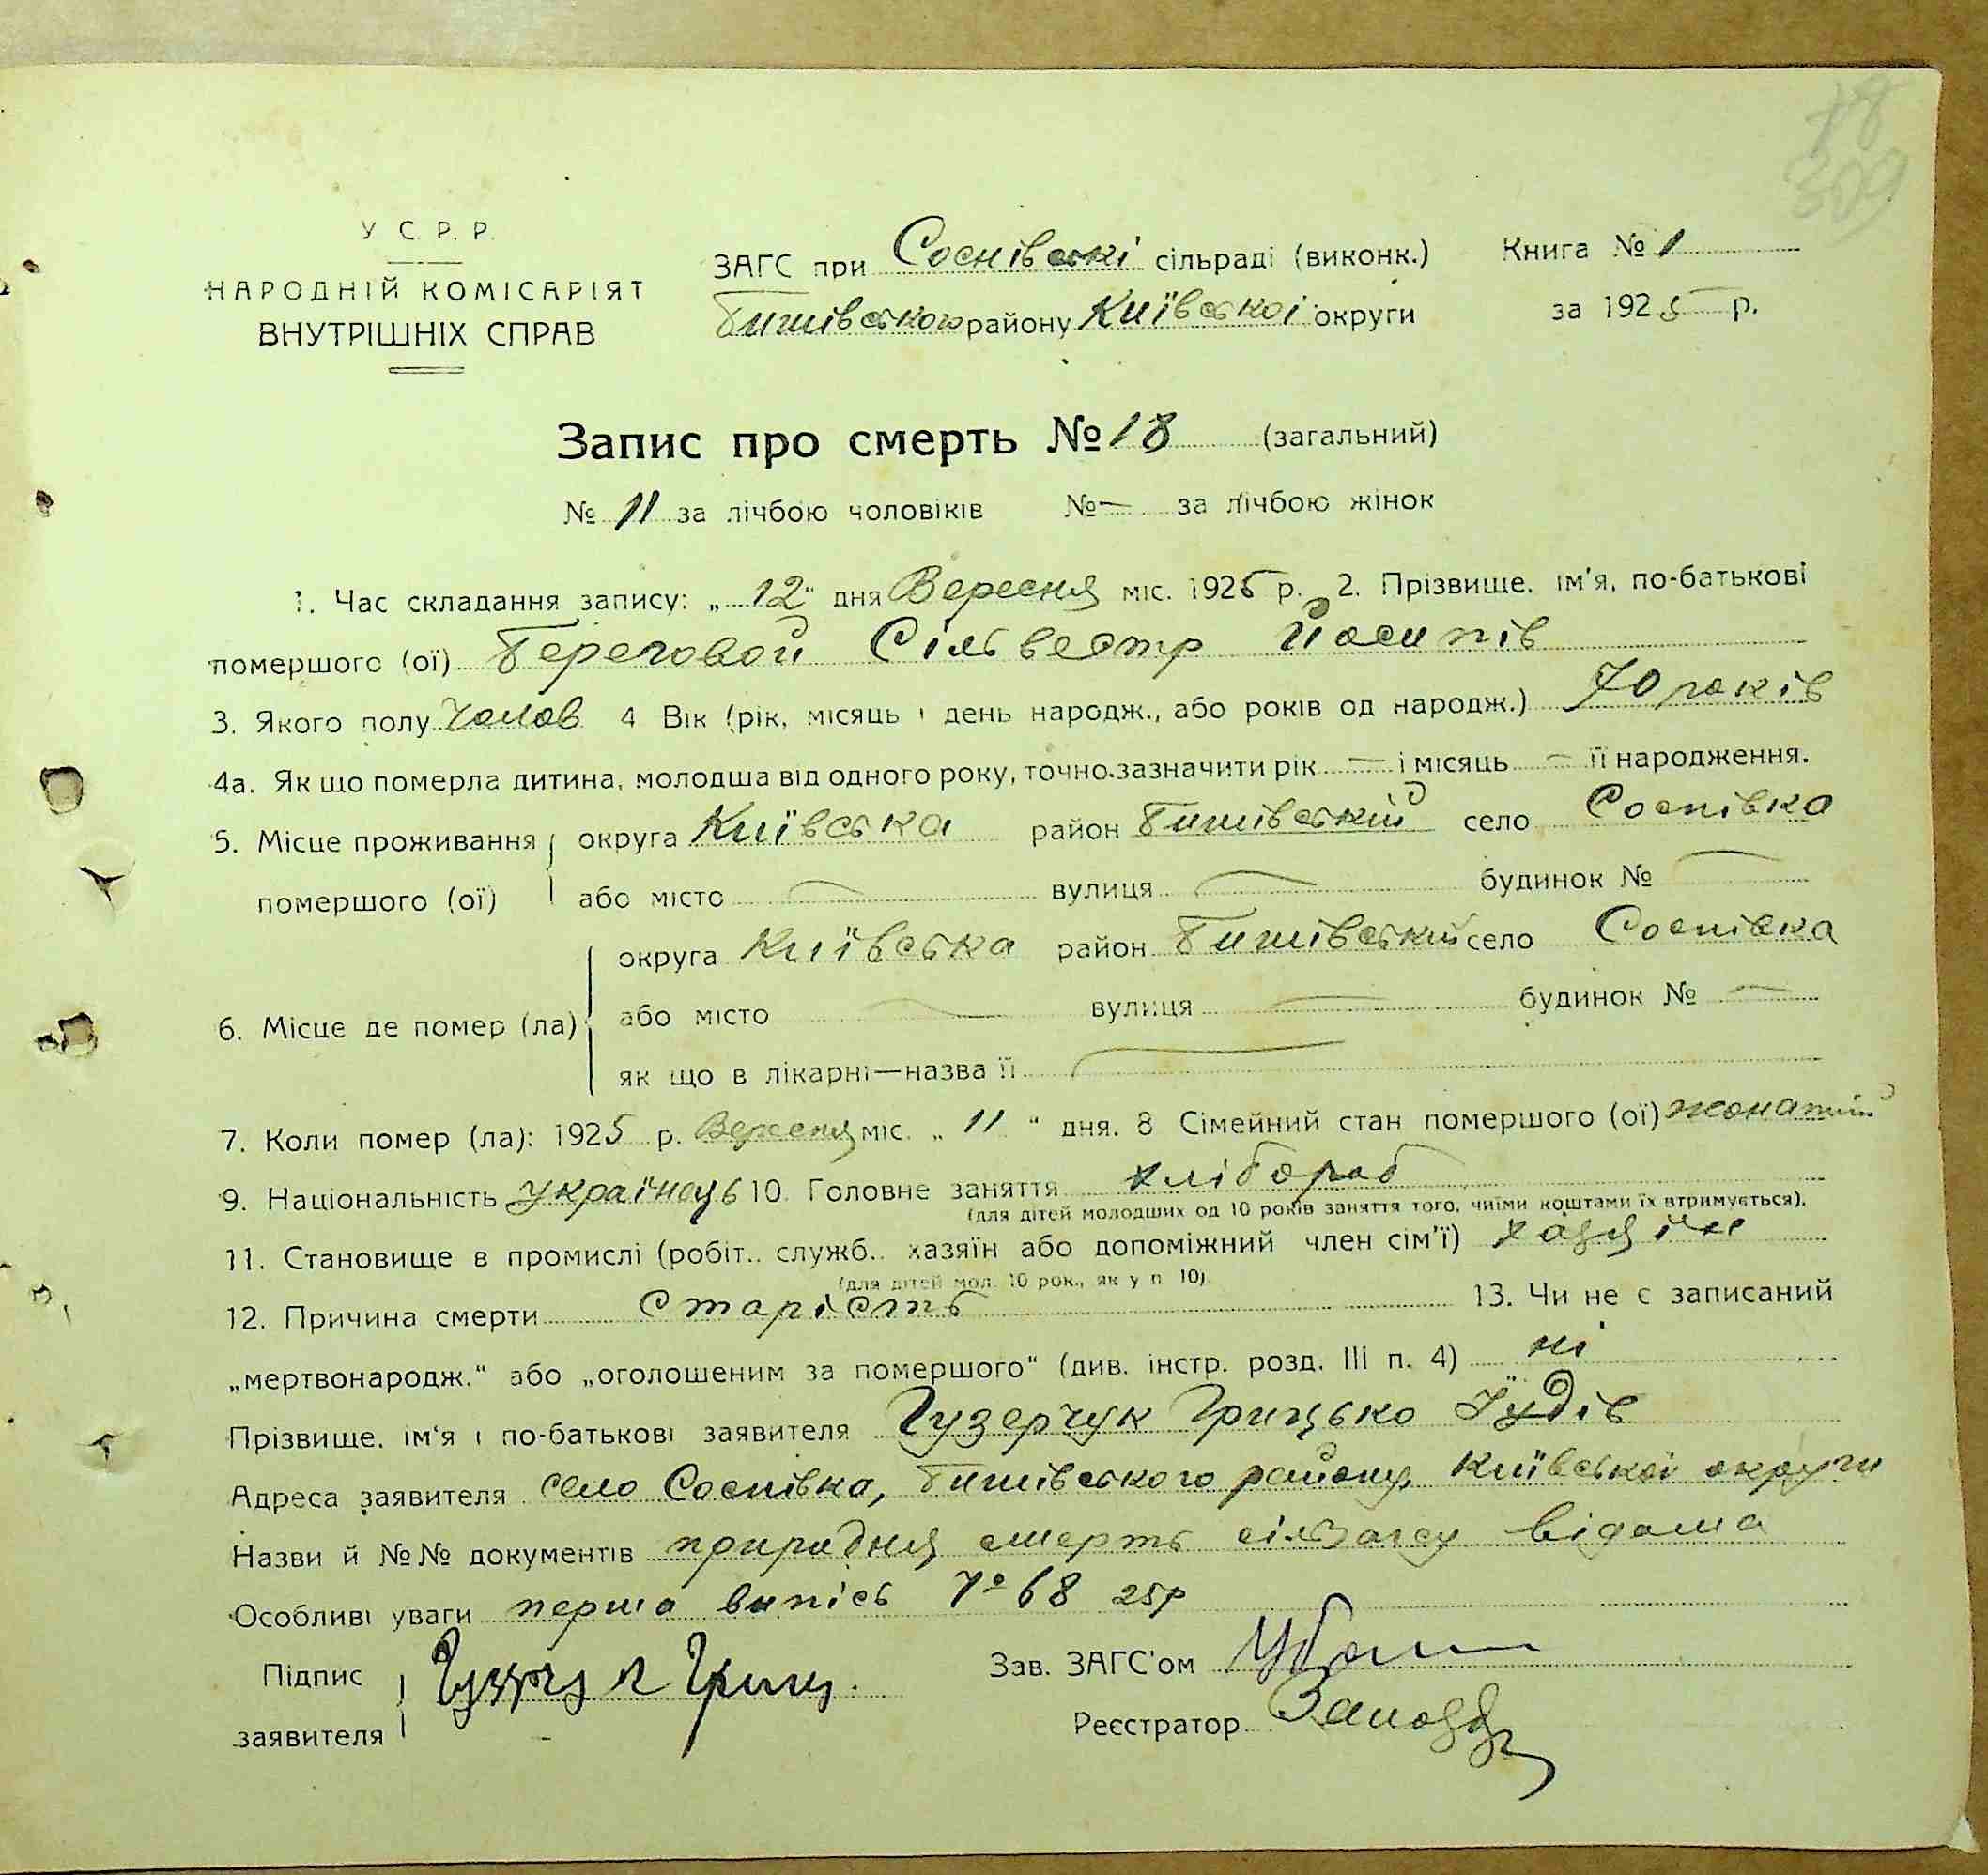 78
309
У С. Р. Р.
НАРОДНІЙ КОМІСАРІЯТ
ВНУТРІШНІХ СПРАВ
ЗАГС при Соснівські сільраді (виконк.)
Бишівського району Київської округи
Книга № 1
за 1925 р.
Запис про смерть № 18 (загальний)
№ 11 за лічбою чоловіків № — за лічбою жінок
1. Час складання запису: „12" дня Вересня міс. 1925 р. 2. Прізвище, ім'я, по-батькові
помершого (ої) Береговой Сільвестр Йосипів
3. Якого полу чолов 4 Вік (рік, місяць і день народж., або років од народж.) 70 років
4а. Як що померла дитина, молодша від одного року, точно зазначити рік — і місяць — її народження.
5. Місце проживання округа Київська район Бишівській село Соснівка
помершого (ої) або місто — вулиця — будинок № —
округа Київська район Бишівській село Соснівка
6. Місце де помер (ла) або місто — вулиця — будинок № —
як що в лікарні—назва її —
7. Коли помер (ла): 1925 р. Вересня міс. „11" дня. 8 Сімейний стан помершого (ої) жонатий
9. Національність українець 10. Головне заняття хлібороб
(для дітей молодших од 10 років заняття того, чиїми коштами їх втримується).
11. Становище в промислі (робіт., служб., хазяїн або допоміжний член сім'ї) хазяїн
(для дітей мол. 10 рок., як у п 10)
12. Причина смерти старість 13. Чи не є записаний
„мертвонародж." або „оголошеним за помершого" (див. інстр. розд. III п. 4) ні
Прізвище, ім'я і по-батькові заявителя Гузерчук Грицько Юдів
Адреса заявителя село Соснівка, Бишівського району, Київської округи
Назви й №№ документів природня смерть сілзагсу відома
Особливі уваги перша випісь № 68 25р
Підпис
заявителя
Зав. ЗАГС'ом
Реєстратор